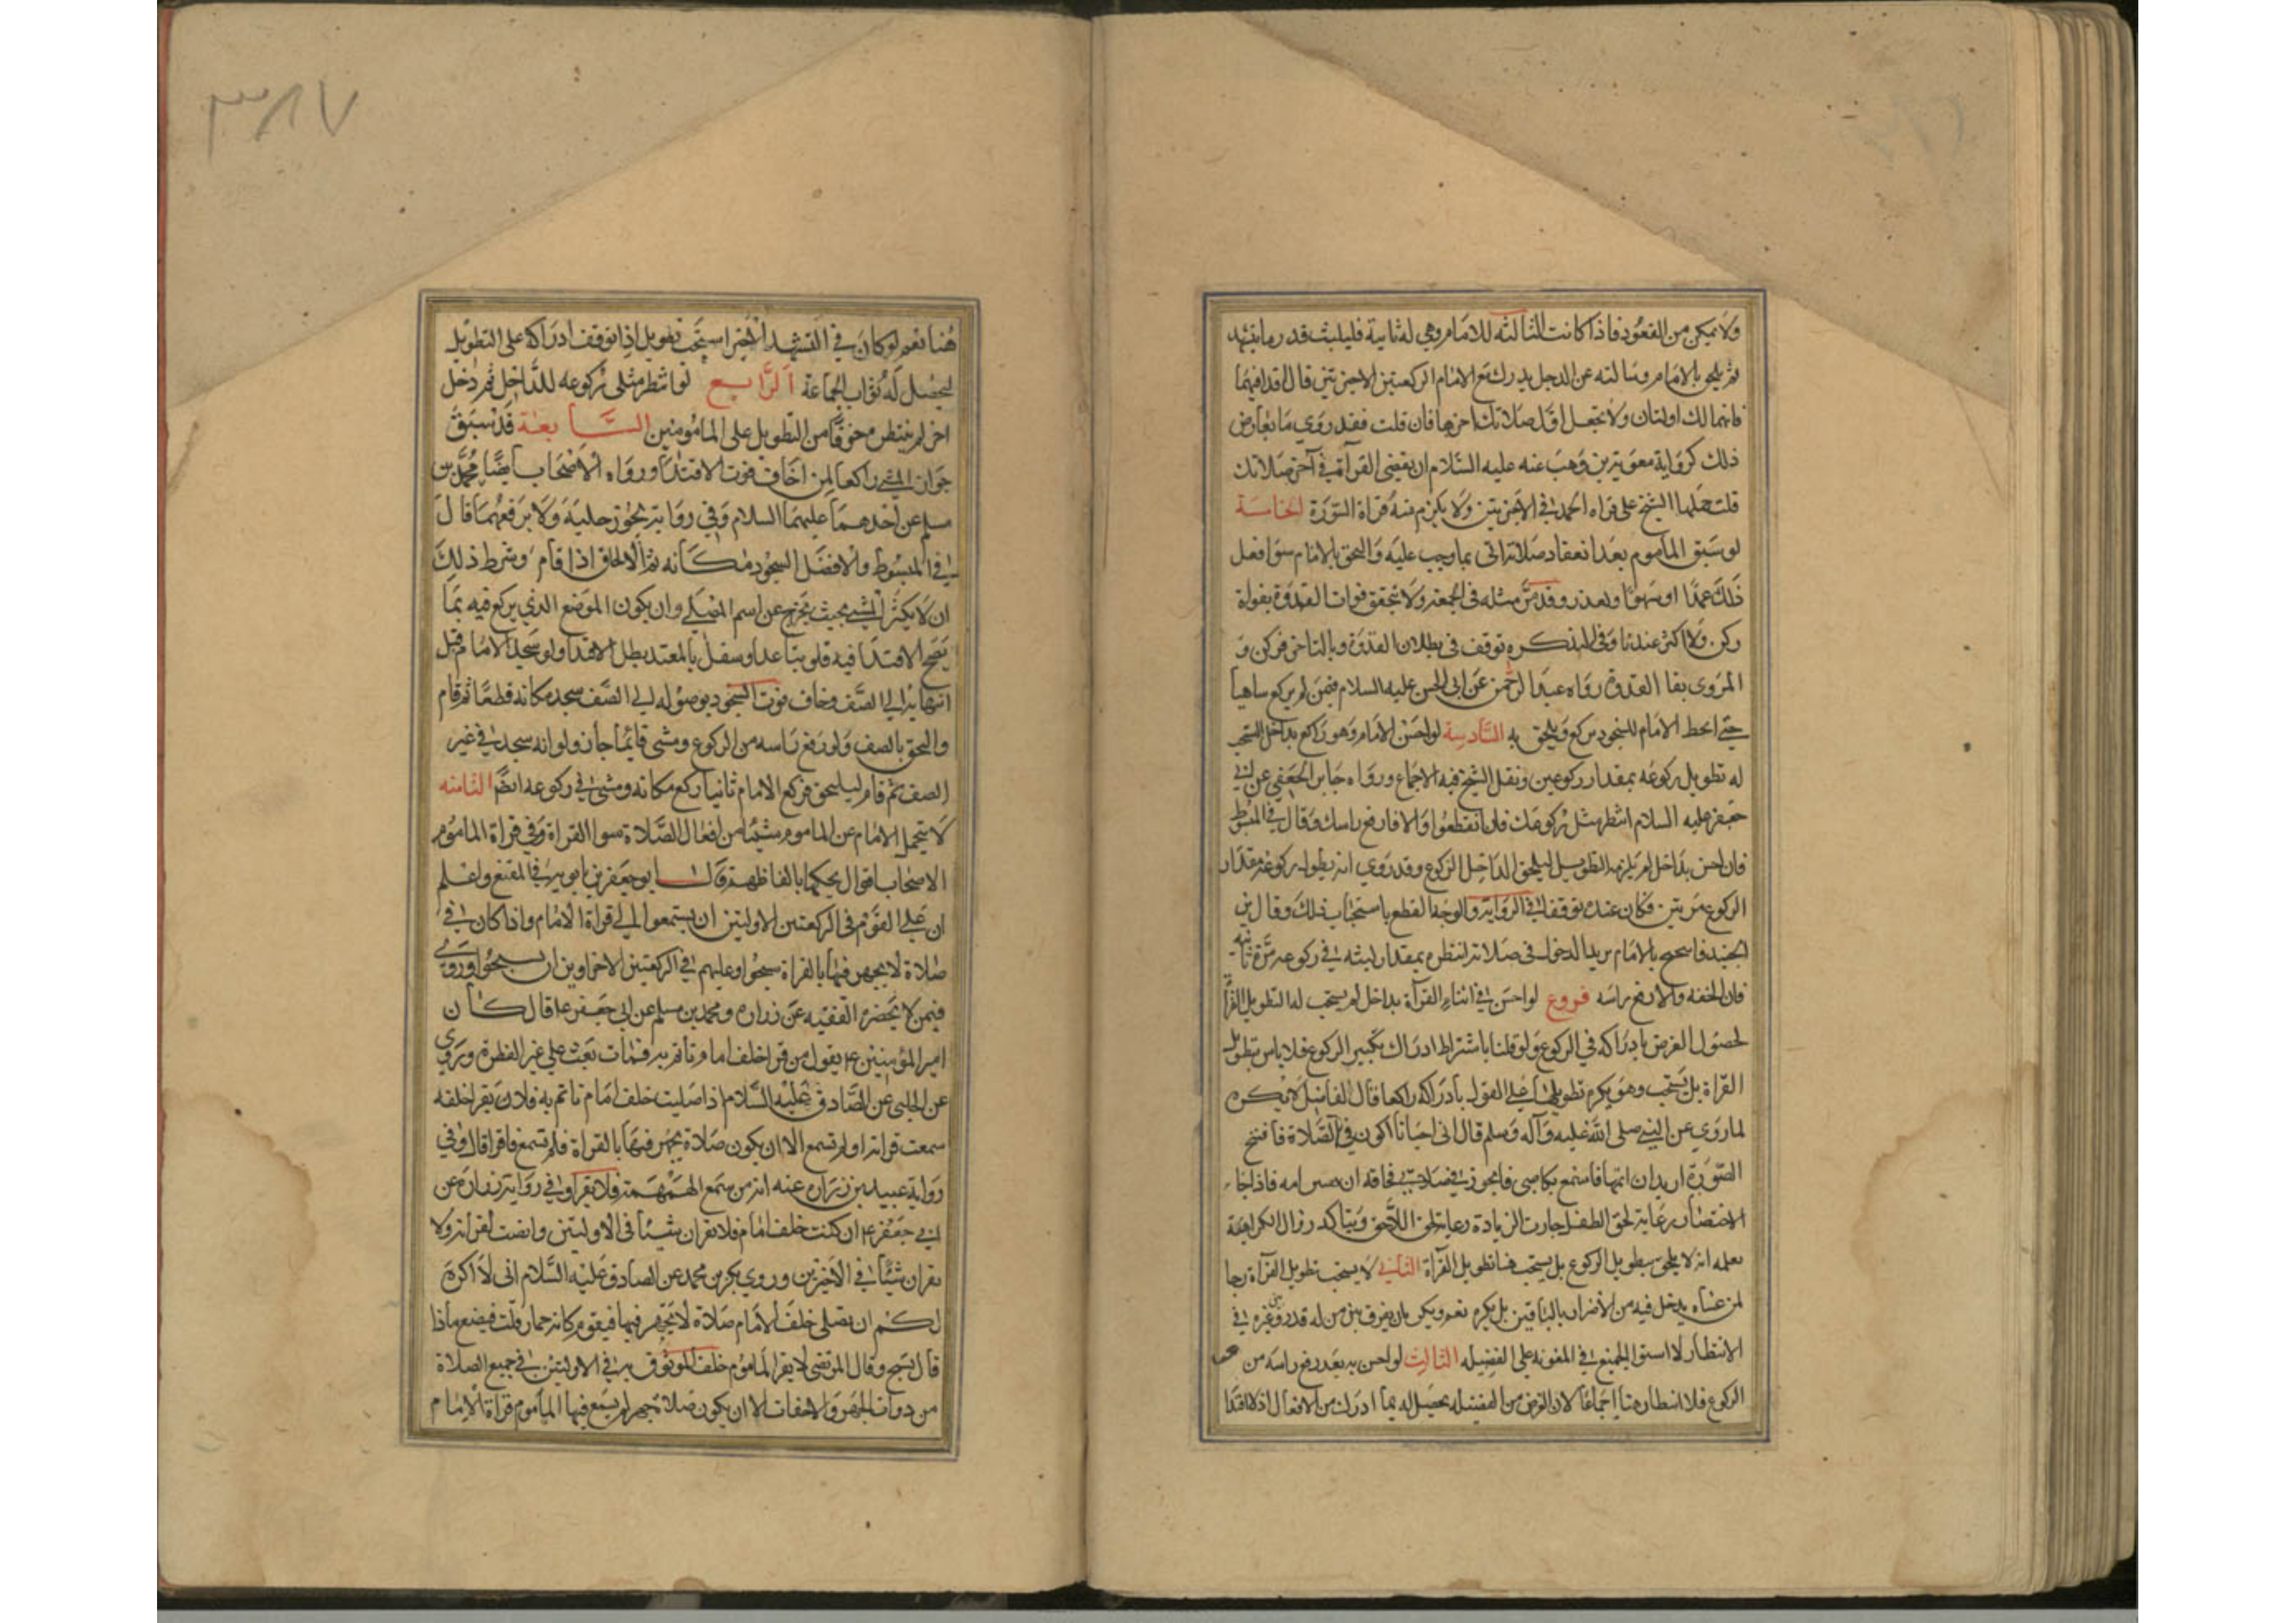 ولا يمكن من القعود فاذا كانت الثالثه للامام وهي له ثانية فليلبث قدر ما يتشهد
ثم يلحق بالامام وسالته عن الرجل يدرك مع الامام الركعتين الاخيرتين قال اقرا فيهما
فانهما لك اولتان ولا تجعل اول صلاتك اخرها فان قلت فقد روي ما يعارض
ذلك كرواية معوية بن وهب عنه عليه السلام ان يقضي القرآة في آخر صلاتك
قلت حملها الشيخ على قراه الحمد في الاخيرتين ولا يلزم منه قراة السورة الخامسة
لو سبق الماموم بعد انعقاد صلاته اتى بما وجب عليه والتحق بالامام سوا فعل
ذلك عمدا او سهوا او لعذر وقد مر مثله في الجمعة ولا يتحقق فوات القدوة بفواة
ركن ولا اكثر عندنا وفي التذكره توقف في بطلان القدوة بالتاخر بركن و
المروي بقا القدوة رواه عبد الرحمن عن ابي الحسن عليه السلام فيمن لم يركع ساهيا
حتى انحط الامام للسجود يركع ويلحق به السادسة لو احس الامام وهو راكع بداخل استحب
له تطويل ركوعه بمقدار ركوعين ونقل الشيخ فيه الاجماع ورواه جابر الجعفي عن ابي
جعفر عليه السلام انتظر مثل ركوعك فان انقطعوا والا فارفع راسك وقال في المبسوط
فان احس بداخل لم يلزمه التطويل ليلحق الداخل الركوع وقد روي انه يطول ركوعه مقدار
الركوع مرتين فكان عنده توقفا في الرواية والوجه القطع باستحباب ذلك وقال بن
الجنيد فاسحج بالامام يريد الدخول في صلاته انتظره بمقدار لبثه في ركوعه مرة ثانيه
فان لحقه والا رفع راسه فروع لو احس في اثناء القرآة بداخل لم يستحب له التطويل القرآة
لحصول الغرض بادراكه في الركوع ولو قلنا باشتراط ادراك تكبير الركوع فلا باس بتطويل
القراة بل يستحب وهو يكره تطويلها على القول بادراكه راكعا قال الفاضل لا يكره
لما روي عن النبي صلى الله عليه وآله وسلم قال اني احيانا اكون في الصلاة فافتتح
السورة اريد ان اتمها فاسمع بكا صبي فاتجوز في صلاتي مخافة ان امه فاذا جاز
الاختصار رعاية لحق الطفل جازت الزيادة رعاية لحق اللاحق ويتاكد زوال الكراهية
بعلمه انه لا يلحق بتطويل الركوع بل يستحب هنا تطويل القرآة الثاني لا يستحب تطويل القرآة رجا
لمن عساه يدخل فيه من الاضرار بالباقين بل يكره نعم ويكره ان يفرق بين من له قدر وبين غيره في
الانتظار لاستوا الجميع في المعونه على الفضيله الثالث لو احس به بعد رفع راسه من
الركوع فلا انتظار هنا اجماعا لان الغرض من الفضيله يحصل له بما ادرك من الافعال اذ لا اقتدا
٣٨٧
هنا نعم لو كان في التشهد الاخير استحب تطويل اذا توقف ادراكه على التطويل
ليحصل له ثواب الجماعة الرابع لو انتظر مثلي ركوعه للداخل ثم دخل
اخر لم ينتظر خوفا من التطويل على المامومين السابعة قد سبق
جواز المشي راكعا لمن اخاف فوت الاقتدا ورواه الاصحاب ايضا محمد بن
مسلم عن احدهما عليهما السلام وفي رواية يجوز رجليه ولا يرفعهما قال
في المبسوط والافضل السجود مكانه ثم الالحاق اذا قام وشرط ذلك
ان لا يكثر المشي بحيث يخرج عن اسم المصلي وان يكون الموضع الذي يركع فيه مما
يصح الاقتدا فيه فلو تباعد او سفل بالمعتد بطل الاقتدا ولو سجد الامام قبل
انتهايه الى الصف وخاف فوت السجود بوصوله الى الصف سجد مكانه قطعا ثم قام
والتحق بالصف ولو رفع راسه من الركوع ومشى قائما جاز ولو انه سجد في غير
الصف ثم قام ليلتحق فركع الامام ثانيا ركع مكانه ومشى في ركوعه ايضا الثامنه
لا يتحمل الامام عن الماموم شيئا من افعال الصلاة سوا القراة وفي قراة الماموم
الاصحاب اقوال نحكيها بالفاظهم قال ابو جعفر بن بابويه في المقنع واعلم
ان على القوم في الركعتين الاولتين ان يستمعوا الى قراة الامام واذا كان في
صلاة لا يجهر فيها بالقراة سبحوا وعليهم في الركعتين الاخراوين ان يسبحوا وروى
فيمن لا يحضره الفقيه عن زراره ومحمد بن مسلم عن ابي جعفر ع قال كان
امير المؤمنين ع يقول من قرا خلف امام تاتم به فمات بعث على غير الفطرة وروى
عن الحلبي عن الصادق عليه السلام اذا صليت خلف امام تاتم به فلا تقرا خلفه
سمعت قراته او لم تسمع الا ان يكون صلاة يجهر فيها بالقراة فلم تسمع فاقرا قال وفي
رواية عبيد بن زراره عنه انه من سمع الهمهمة فلا يقرا وفي رواية زرارة عن
ابي جعفر ع ان كنت خلف امام فلا تقران شيئا في الاولتين وانصت لقراته ولا
تقران شيئا في الاخيرتين وروى بكر بن محمد عن الصادق عليه السلام اني لا اكره
لكم ان تصلي خلف الامام صلاة لا يجهر فيها فيقوم كانه حمار قلت فيصنع ماذا
قال يسبح وقال المرتضى لا يقرا الماموم خلف الموثوق به في الاولتين في جميع الصلاة
من ذوات الجهر والاخفات الا ان يكون صلاة جهر لم يسمع فيها الماموم قراة الامام